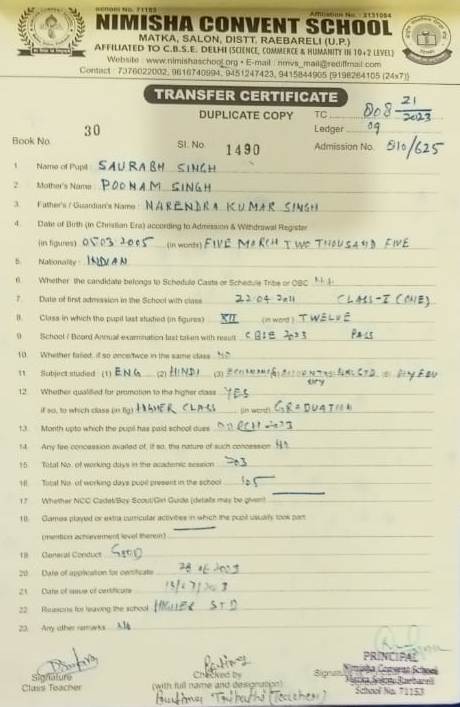 School No. 71153 Affiliation No. : 2131084
NIMISHA CONVENT SCHOOL
MATKA, SALON, DISTT. RAEBARELI (U.P.)
AFFILIATED TO C.B.S.E. DELHI (SCIENCE, COMMERCE & HUMANITY IN 10+2 LEVEL)
Website : www.nimishaschool.org • E-mail : nmvs_mail@rediffmail.com
Contact : 7376022002, 9616740994, 9451247423, 9415844905 [9198264105 (24x7)]
TRANSFER CERTIFICATE
DUPLICATE COPY TC 808 21/2023
Ledger 09
Book No. 30 Sl. No. 1490 Admission No. 810/625
1. Name of Pupil : SAURABH SINGH
2. Mother's Name : POONAM SINGH
3. Father's / Guardian's Name : NARENDRA KUMAR SINGH
4. Date of Birth (in Christian Era) according to Admission & Withdrawal Register
(in figures) 05 03 2005 (in words) FIVE MARCH TWO THOUSAND FIVE
5. Nationality : INDIAN
6. Whether the candidate belongs to Schedule Caste or Schedule Tribe or OBC
7. Date of first admission in the School with class 22.04.2011 CLASS-I (ONE)
8. Class in which the pupil last studied (in figures) XII (in word) TWELVE
9. School / Board Annual examination last taken with result CBSE 2023 PASS
10. Whether failed, if so once/twice in the same class NO
11. Subject studied (1) ENG (2) HINDI (3)
12. Whether qualified for promotion to the higher class YES
if so, to which class (in fig) HIGHER CLASS (in word) GRADUATION
13. Month upto which the pupil has paid school dues MARCH 2023
14. Any fee concession availed of, if so, the nature of such concession No
15. Total No. of working days in the academic session 203
16. Total No. of working days pupil present in the school
17. Whether NCC Cadet/Boy Scout/Girl Guide (details may be given)
18. Games played or extra curricular activities in which the pupil usually took part
(mention achievement level therein)
19. General Conduct GOOD
20. Date of application for certificate
21. Date of issue of certificate
22. Reasons for leaving the school HIGHER STD
23. Any other remarks
PRINCIPAL
Signature Checked by Nimisha Convent School
Class Teacher (with full name and designation) Matka Salon, Raebareli
School No. 71153